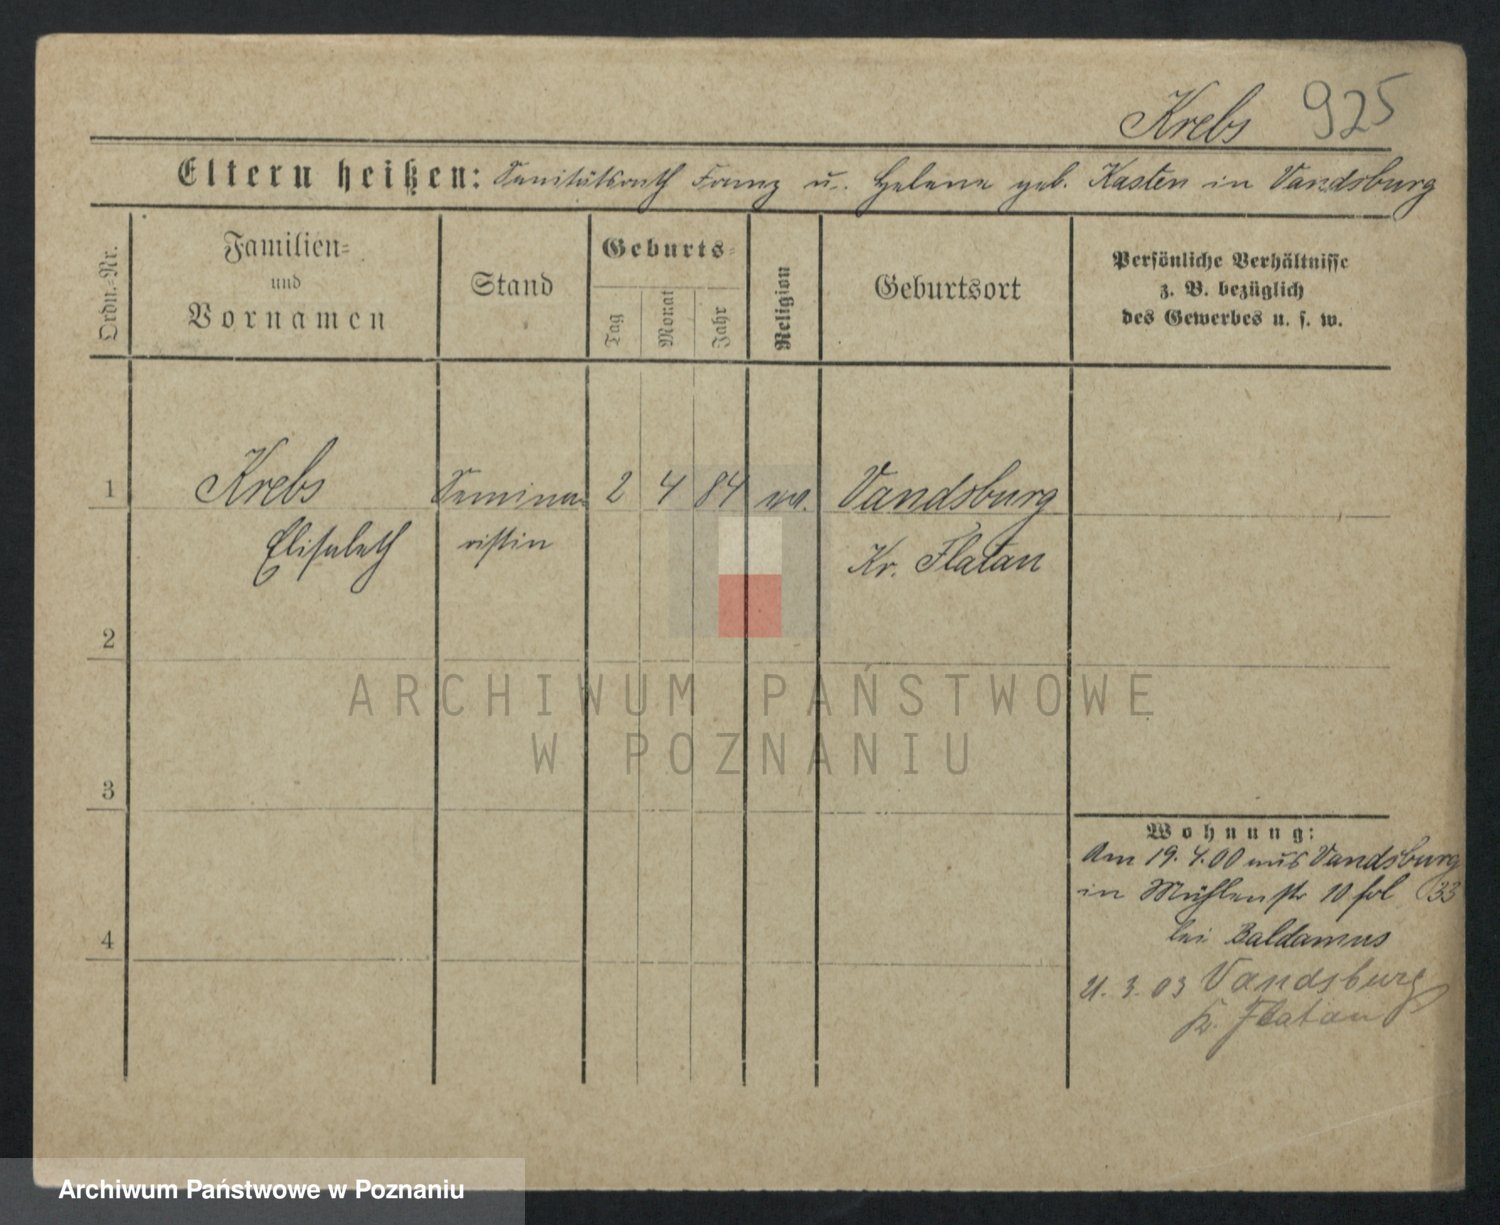 Krebs 925
Eltern heißen: Sanitätsrath Franz u. Helene geb. Kasten in Vandsburg
Ordn.-Nr.
Familien-
und
Vornamen
Stand
Geburts-
Tag
Monat
Jahr
Religion
Geburtsort
Persönliche Verhältnisse
z. B. bezüglich
des Gewerbes u. s. w.
1 Krebs Semina- 2 4 84 ev. Vandsburg
Elisabeth ristin Kr. Flatau
2
3
4
Wohnung:
Am 19.4.00 aus Vandsburg
in Mühlenstr 10 fol 33
bei Baldamus
21.3.03 Vandsburg
Kr. Flatau
ARCHIWUM PAŃSTWOWE
W POZNANIU
Archiwum Państwowe w Poznaniu